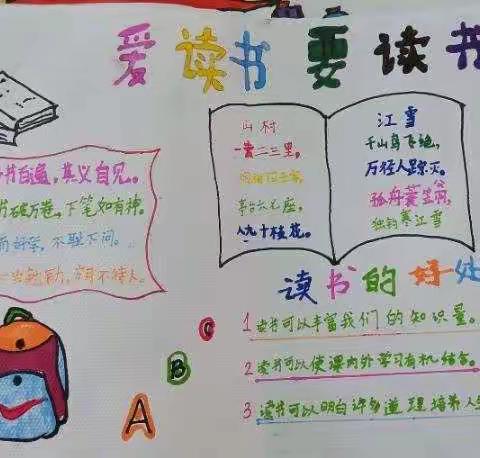 爱读书 要读书
书百遍，其义自见。
书破万卷，下笔如有神。
而好学，不耻下问。
当勉励，岁月不待人。
山村
一去二三里，
烟村四五家，
亭台六七座，
八九十枝花。
江雪
千山鸟飞绝，
万径人踪灭。
孤舟蓑笠翁，
独钓寒江雪
读书的好处
1 读书可以丰富我们的知识量。
2 读书可以使课内外学习有机结合。
3 读书可以明白许多道理 培养人
C
B
A